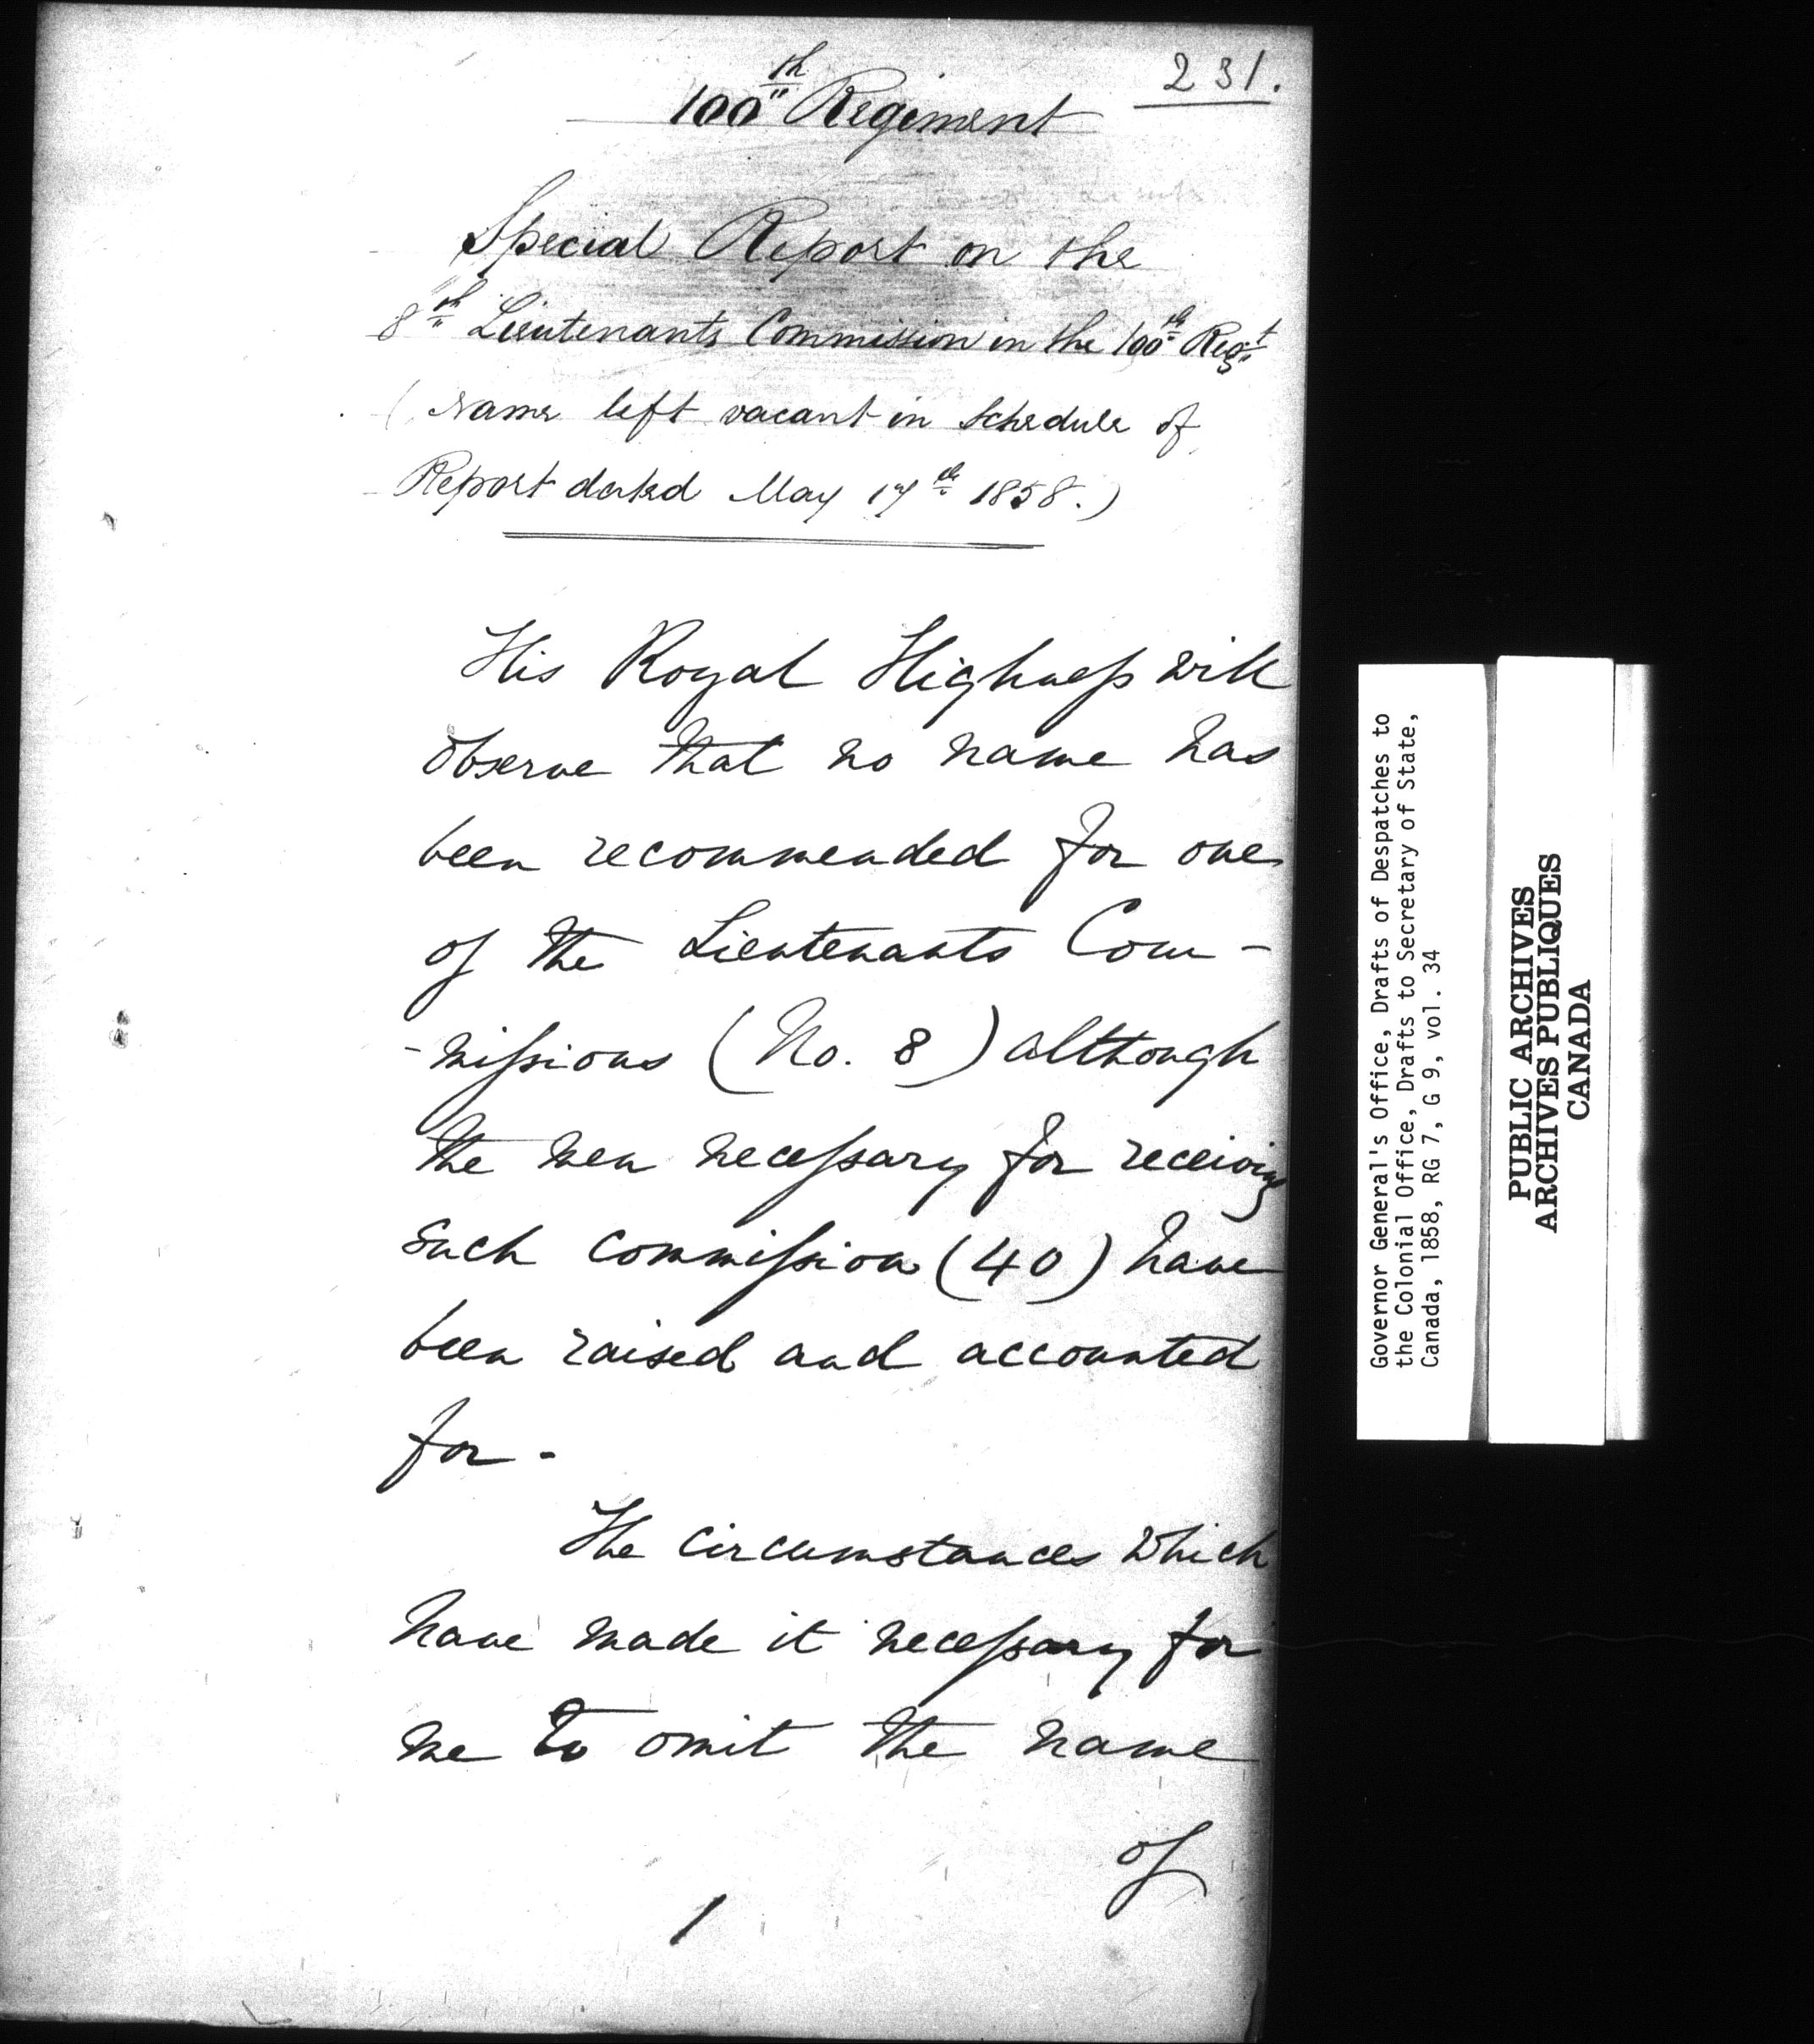 231.
100th Regiment
Special Report on the
8th Lieutenants Commission in the 100th Regt
(name left vacant in Schedule of
Report dated May 17th 1858.)
His Royal Highness will
observe that no name has
been recommended for one
of the Lieutenants Com-
-missions (No. 8) although
the men necessary for receiving
such commission (40) have
been raised and accounted
for -
The circumstances which
have made it necessary for
me to omit the name
of
1
Governor General's Office, Drafts of Despatches to
the Colonial Office, Drafts to Secretary of State,
Canada, 1858, RG 7, G 9, vol. 34
PUBLIC ARCHIVES
ARCHIVES PUBLIQUES
CANADA